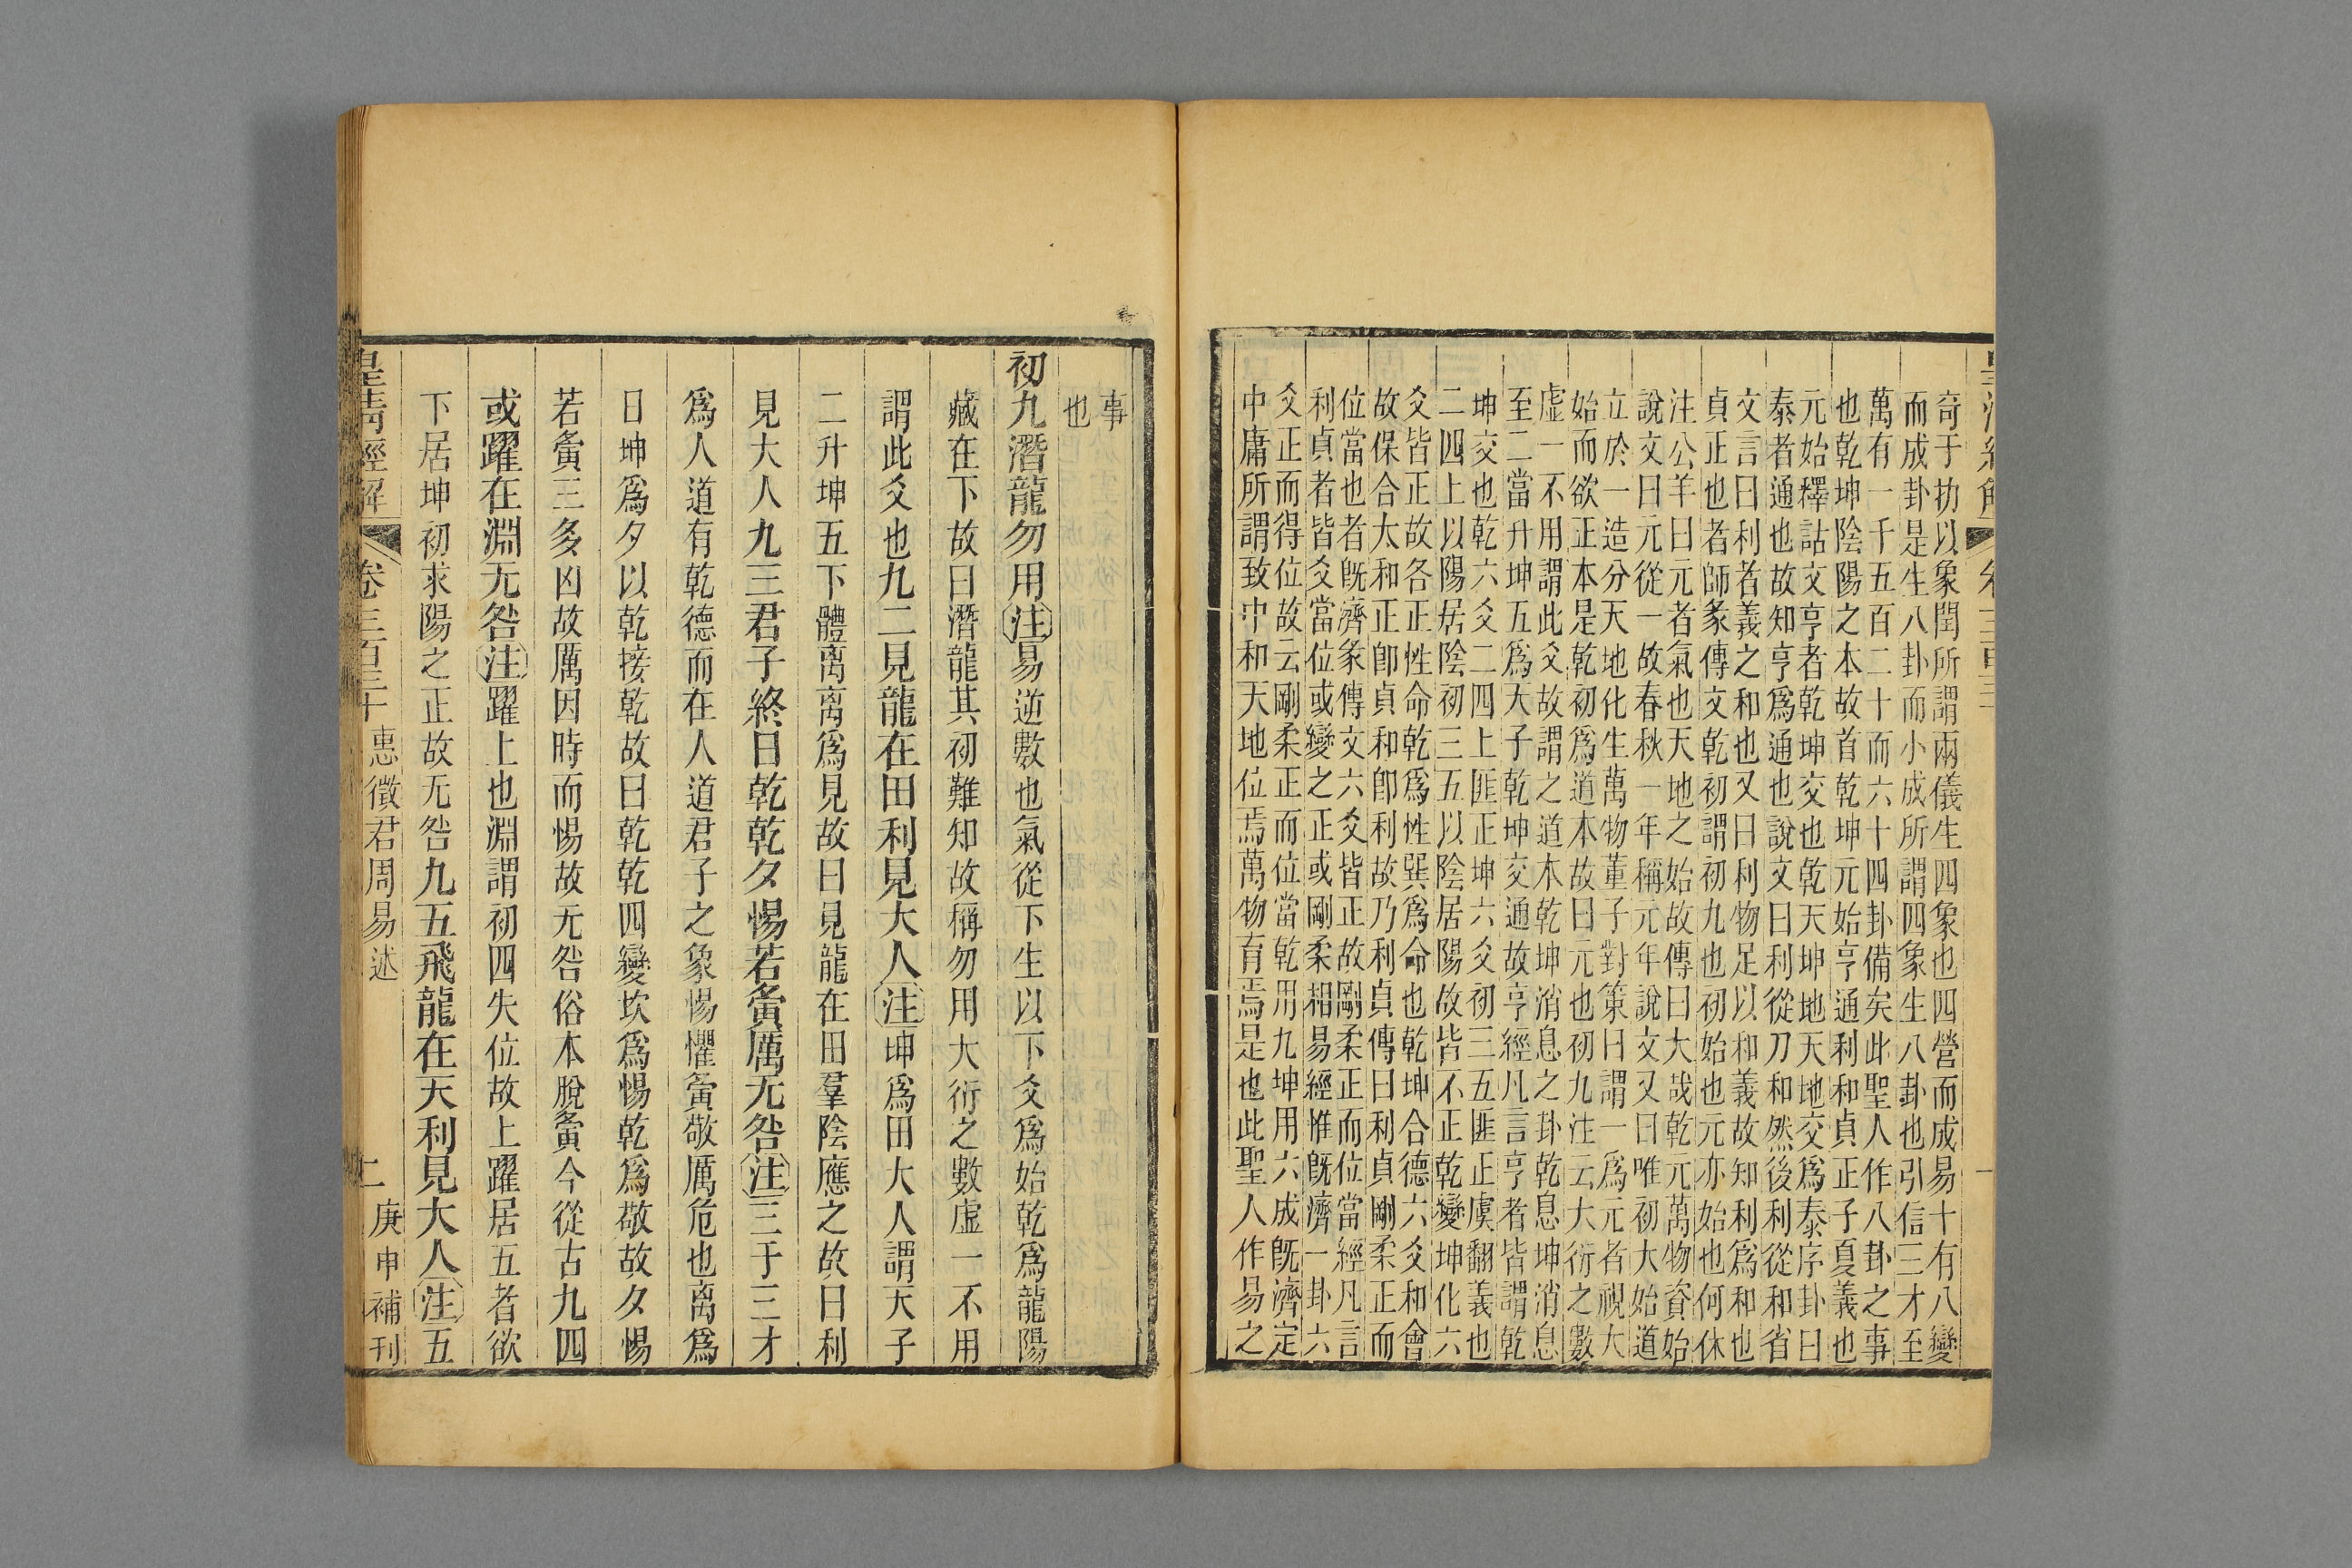 奇于扐以象閏所謂兩儀生四象也四營而成易十有八變
而成卦是生八卦而小成所謂四象生八卦也引信三才至
萬有一千五百二十而六十四卦備矣此聖人作八卦之事
也乾坤陰陽之本故首乾坤元始亨通利和貞正子夏義也
元始釋詁文亨者乾坤交也乾天坤地天地交爲泰序卦曰
泰者通也故知亨爲通也說文曰利從刀和然後利從和省
文言曰利者義之和也又曰利物足以和義故知利爲和也
貞正也者師彖傳文乾初謂初九也初始也元亦始也何休
注公羊曰元者氣也天地之始故傳曰大哉乾元萬物資始
說文曰元從一故春秋一年稱元年說文又曰唯初大始道
立於一造分天地化生萬物董子對策曰謂一爲元者視大
始而欲正本是乾初爲道本故曰元也初九注云大衍之數
虛一不用謂此爻故謂之道本乾坤消息之卦乾息坤消息
至二當升坤五爲天子乾坤交通故亨經凡言亨者皆謂乾
坤交也乾六爻二四上匪正坤六爻初三五匪正虞翻義也
二四上以陽居陰初三五以陰居陽故皆不正乾變坤化六
爻皆正故各正性命乾爲性巽爲命也乾坤合德六爻和會
故保合太和正卽貞和卽利故乃利貞傳曰利貞剛柔正而
位當也者既濟彖傳文六爻皆正故剛柔正而位當經凡言
利貞者皆爻當位或變之正或剛柔相易經惟既濟一卦六
爻正而得位故云剛柔正而位當乾用九坤用六成既濟定
中庸所謂致中和天地位焉萬物育焉是也此聖人作易之
事
也
初九潛龍勿用注易逆數也氣從下生以下爻爲始乾爲龍陽
藏在下故曰潛龍其初難知故稱勿用大衍之數虛一不用
謂此爻也九二見龍在田利見大人注坤爲田大人謂天子
二升坤五下體离离爲見故曰見龍在田羣陰應之故曰利
見大人九三君子終日乾乾夕惕若夤厲无咎注三于三才
爲人道有乾德而在人道君子之象惕懼夤敬厲危也离爲
日坤爲夕以乾接乾故曰乾乾四變坎爲惕乾爲敬故夕惕
若夤三多凶故厲因時而惕故无咎俗本脫夤今從古九四
或躍在淵无咎注躍上也淵謂初四失位故上躍居五者欲
下居坤初求陽之正故无咎九五飛龍在天利見大人注五
皇清經解 卷三百三十 惠徵君周易述 二 庚申補刊